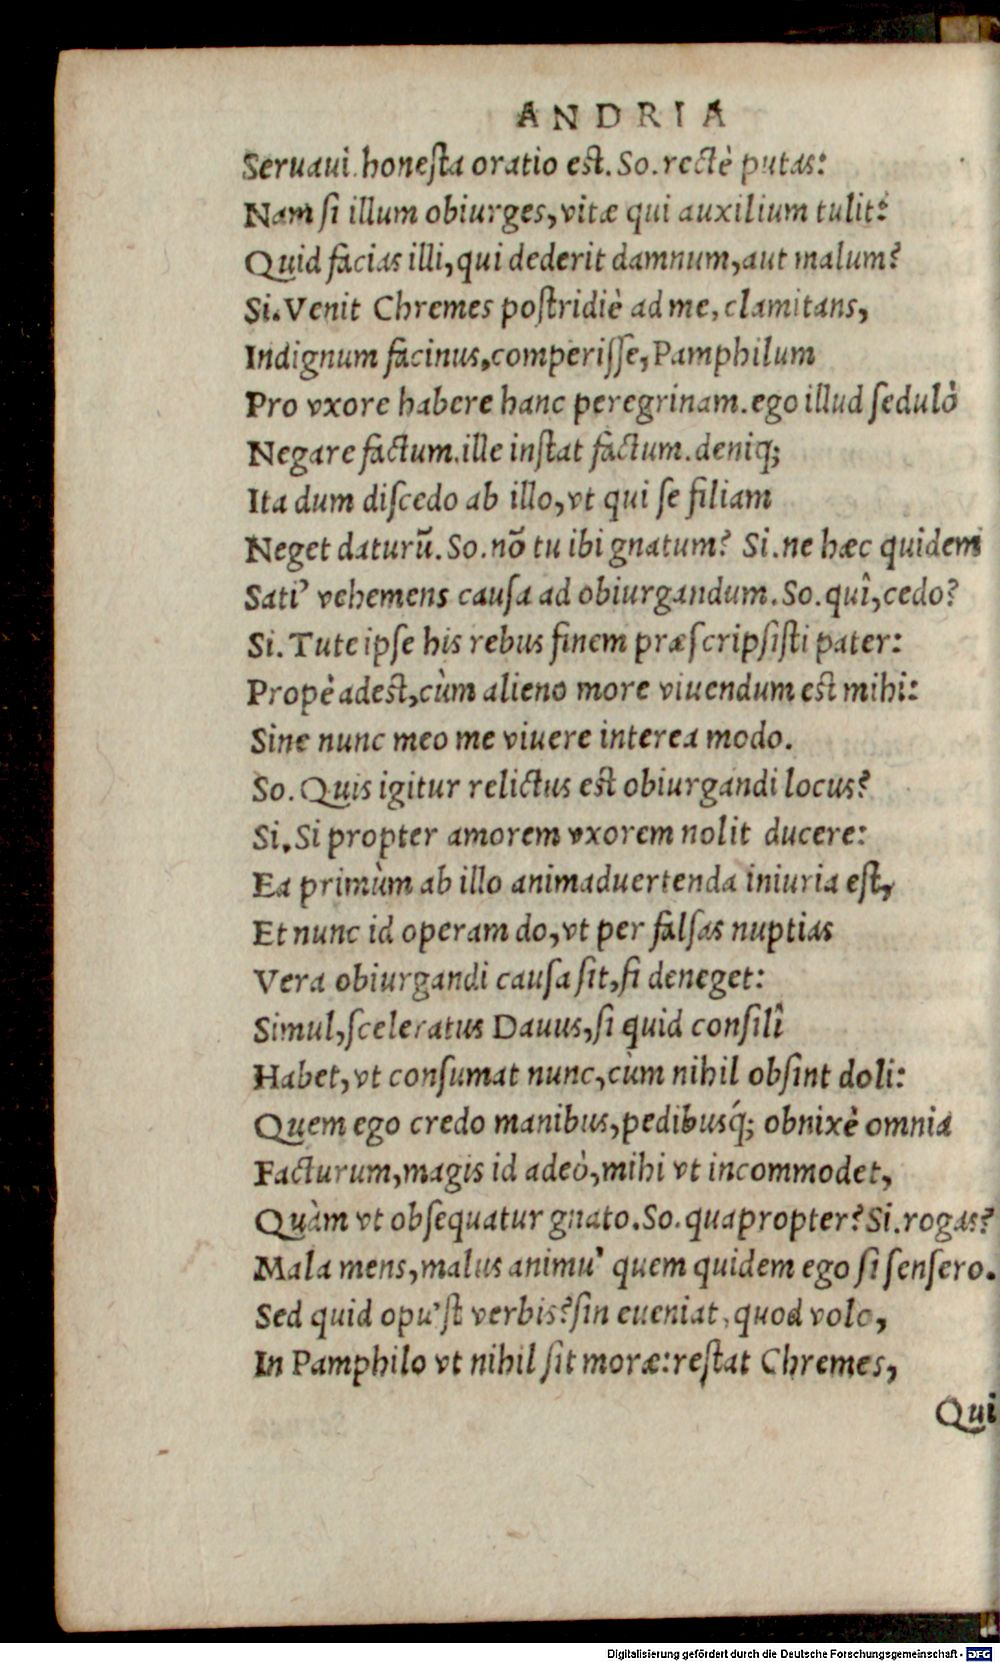 ANDRIA
Seruaui. honeſta oratio est. So. rectè putas:
Nam ſi illum obiurges, vitæ qui auxilium tulit:
Quid facias illi, qui dederit damnum, aut malum?
Si. Venit Chremes poſtridiè ad me, clamitans,
Indignum facinus, comperiſſe, Pamphilum
Pro vxore habere hanc peregrinam. ego illud ſedulò
Negare factum. ille inſtat factum. deniq;
Ita dum diſcedo ab illo, vt qui ſe filiam
Neget daturũ. So. nõ tu ibi gnatum? Si. ne hæc quidem
Sati' vehemens cauſa ad obiurgandum. So. quî, cedo?
Si. Tute ipſe his rebus finem præſcripſiſti pater:
Propè adest, cùm alieno more viuendum est mihi:
Sine nunc meo me viuere interea modo.
So. Quis igitur relictus est obiurgandi locus?
Si. Si propter amorem vxorem nolit ducere:
Ea primùm ab illo animaduertenda iniuria eſt,
Et nunc id operam do, vt per falſas nuptias
Vera obiurgandi cauſa ſit, ſi deneget:
Simul, ſceleratus Dauus, ſi quid conſilî
Habet, vt conſumat nunc, cùm nihil obſint doli:
Quem ego credo manibus, pedibusq́; obnixè omnia
Facturum, magis id adeò, mihi vt incommodet,
Quàm vt obſequatur gnato. So. quapropter? Si. rogas?
Mala mens, malus animu' quem quidem ego ſi ſenſero.
Sed quid opu'ſt verbis? ſin eueniat, quod volo,
In Pamphilo vt nihil ſit moræ: reſtat Chremes,
Qui
Digitalisierung gefördert durch die Deutsche Forschungsgemeinschaft - DFG